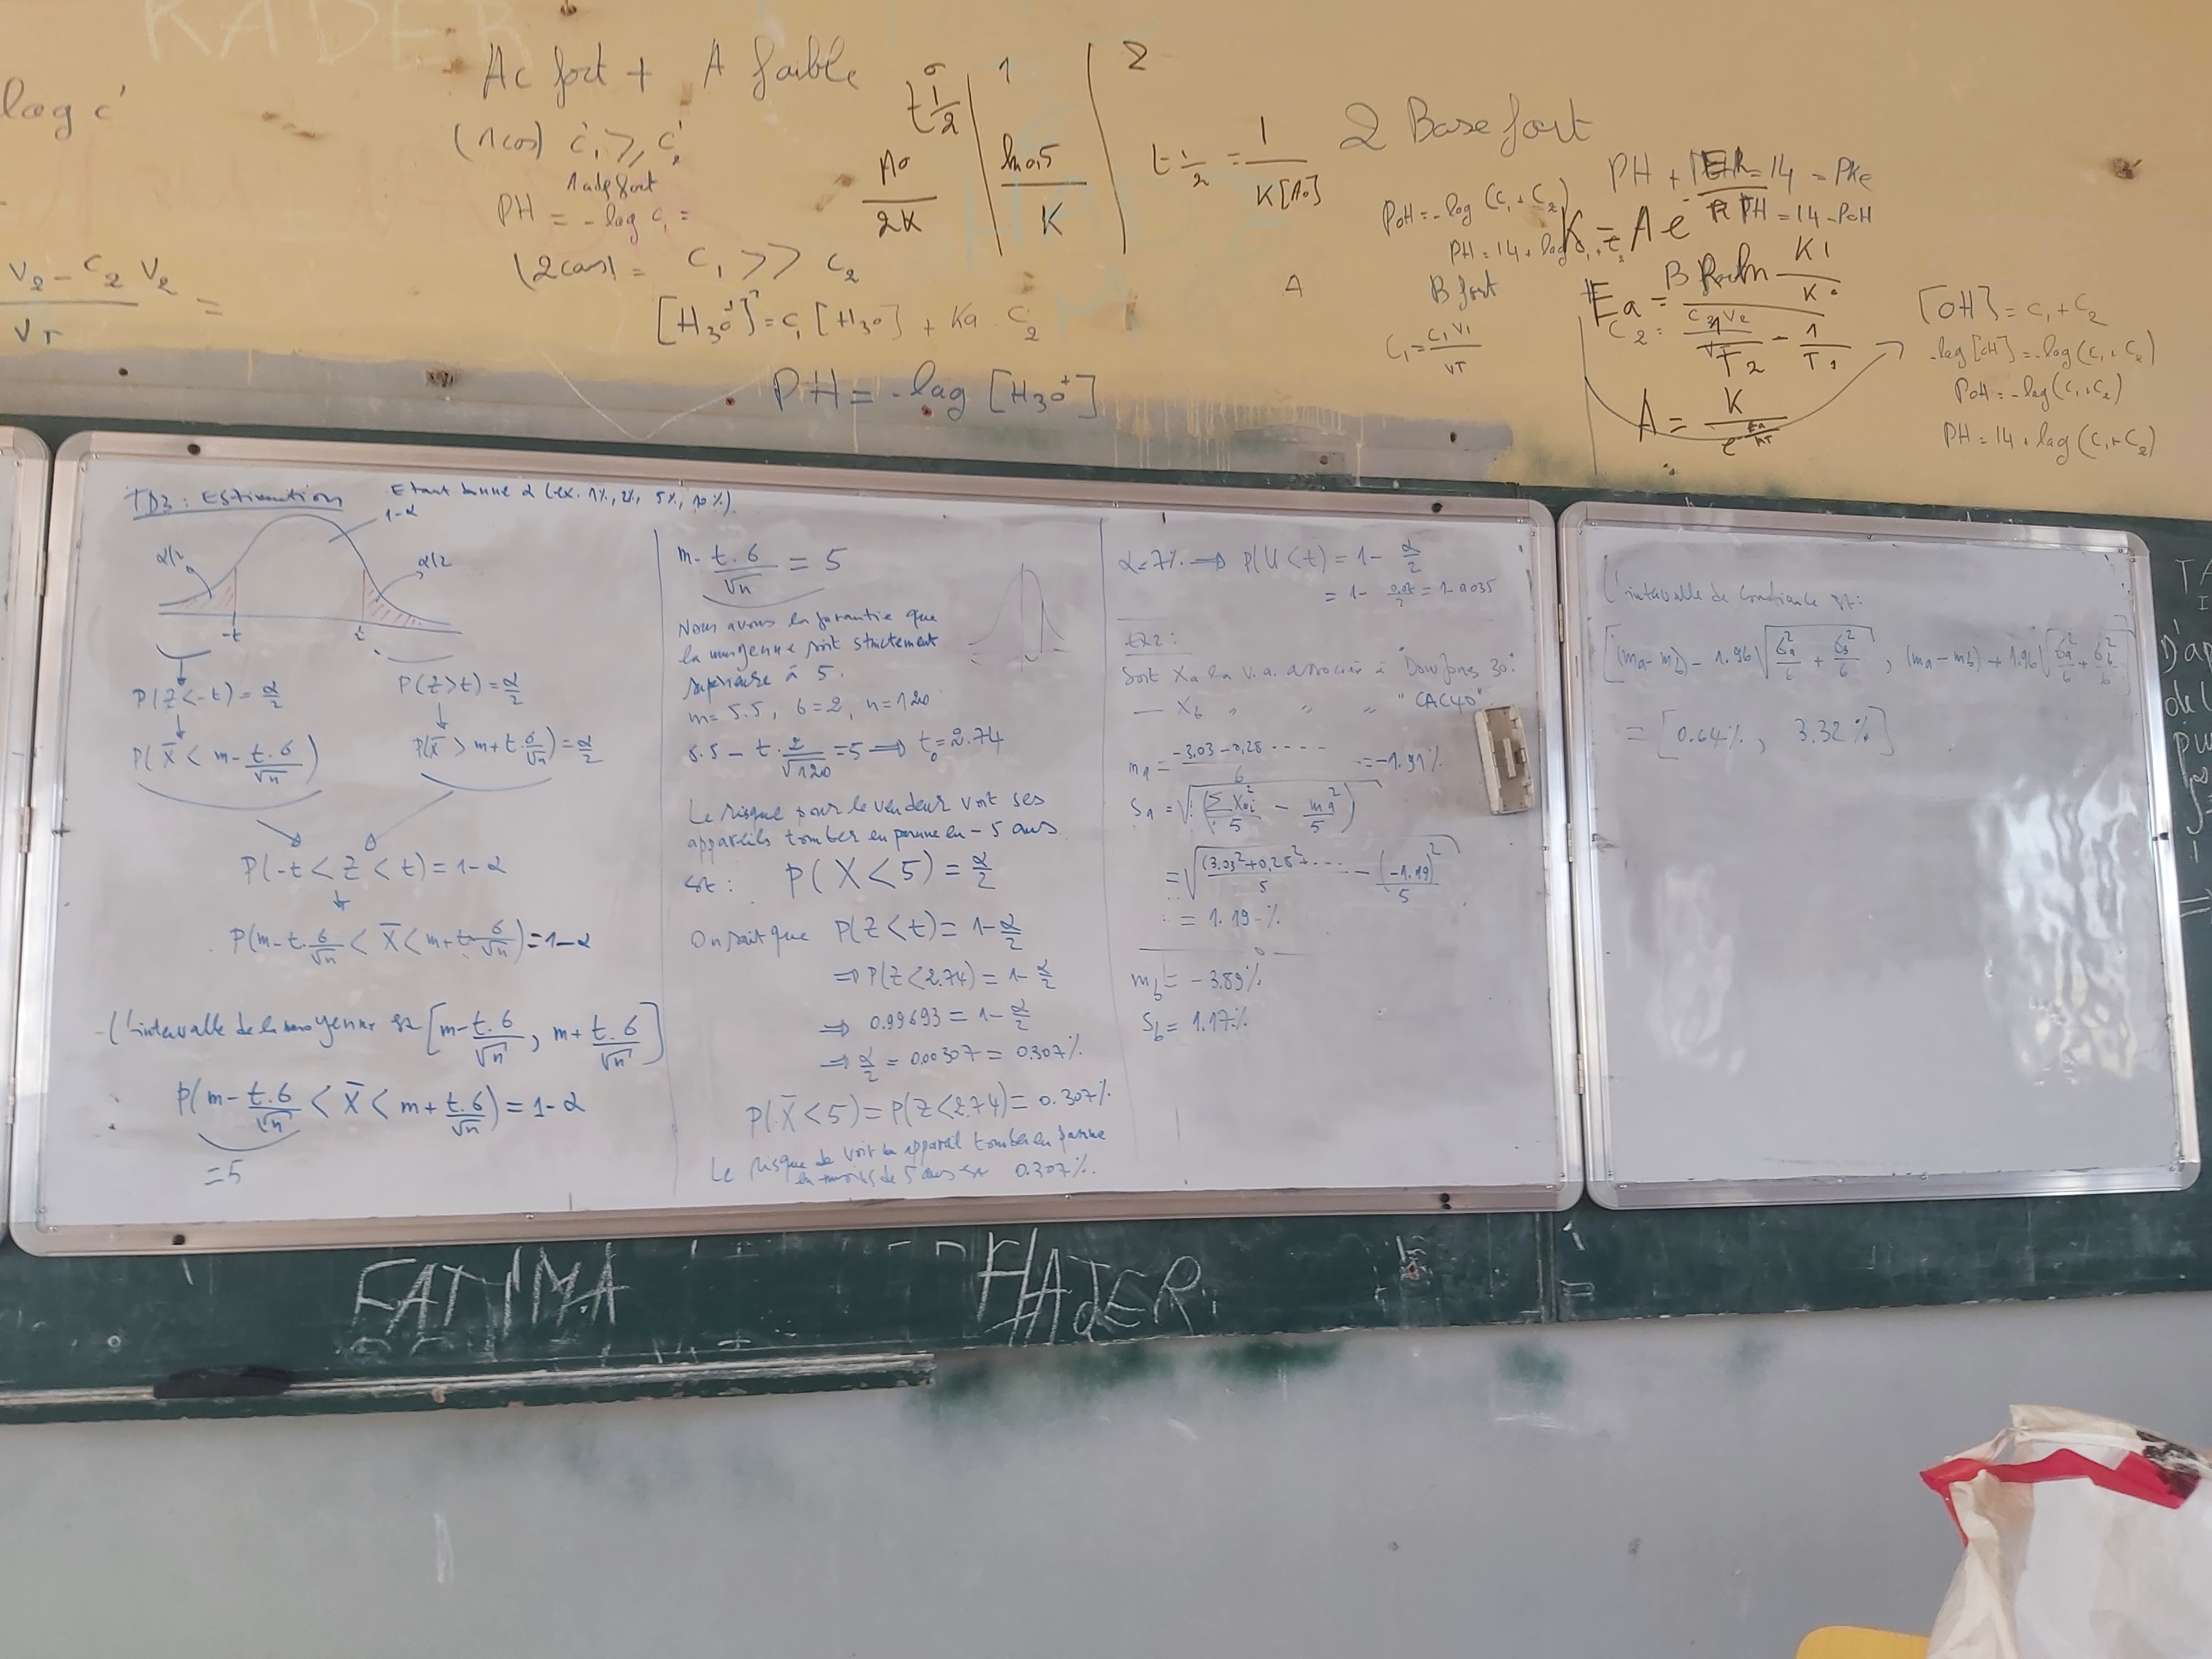 KADER
log c'
V₂ - C₂ V₂ =
VT
Ac fort + A faible
(1cas) c₁' ≥ c₂'
PH = -log c₁ =
(2cas) = C₁ >> C₂
[H₃O⁺]² = C₁ [H₃O] + Ka C₂
PH = -log [H₃O⁺]
t 1/2 | 1 | 2
A0/2K | ln0,5/K | t 1/2 = 1/K[A0]
2 Base fort
POH = -log (C₁ + C₂)
PH = 14 + log
PH + = 14 = PKe
PH = 14 - POH
K = A e
A
B fort
C₁ = C₁V₁/VT
Ea =
C₂ =
1/T₂ - 1/T₁
A = K/e
[OH] = C₁ + C₂
-log [OH] = -log (C₁ + C₂)
POH = -log (C₁ + C₂)
PH = 14 + log (C₁ + C₂)
TD3 : Estimation Etant donné α (ex. 1%, 2%, 5%, 10%)
1-α
α/2 α/2
-t t
P(Z < -t) = α/2 P(Z > t) = α/2
P(X̄ < m - t.σ/√n) P(X̄ > m + t.σ/√n) = α/2
P(-t < Z < t) = 1-α
P(m - t.σ/√n < X̄ < m + t.σ/√n) = 1-α
L'intervalle de la moyenne est [m - t.σ/√n, m + t.σ/√n]
P(m - t.σ/√n < X̄ < m + t.σ/√n) = 1-α
= 5
m - t.σ/√n = 5
Nous avons la garantie que
la moyenne soit strictement
supérieure à 5.
m = 5.5, σ = 2, n = 120
5.5 - t.2/√120 = 5 ⟹ t₀ = 2.74
Le risque pour le vendeur voit ses
appareils tomber en panne en - 5 ans
est : P(X < 5) = α/2
On sait que P(Z < t) = 1 - α/2
⟹ P(Z < 2.74) = 1 - α/2
⟹ 0.99693 = 1 - α/2
⟹ α/2 = 0.00307 = 0.307%
P(X̄ < 5) = P(Z < 2.74) = 0.307%
Le risque de voir un appareil tomber en panne
en moins de 5 ans est 0.307%.
α = 7% ⟹ P(U < t) = 1 - α/2
= 1 - 0.07/2 = 1 - 0.035
EX2 :
Soit Xa la v.a. associée à "Dow Jones 30"
— Xb " " " "CAC40"
m₁ = -3.03 - 0,28 ..../6 = -1.91%
S₁ = √(Σ Xai²/5 - ma²/5)
= √((3.03² + 0,28² + ...)/5 - (-1.19)²/5)
= 1.19%
mb = -3.89%
Sb = 1.17%
L'intervalle de confiance est :
[(ma - mb) - 1.96 √(σa²/6 + σb²/6), (ma - mb) + 1.96 √(σa²/6 + σb²/6)]
= [0.64%, 3.32%]
D'ap
de l
pu
FATIMA
HAJER